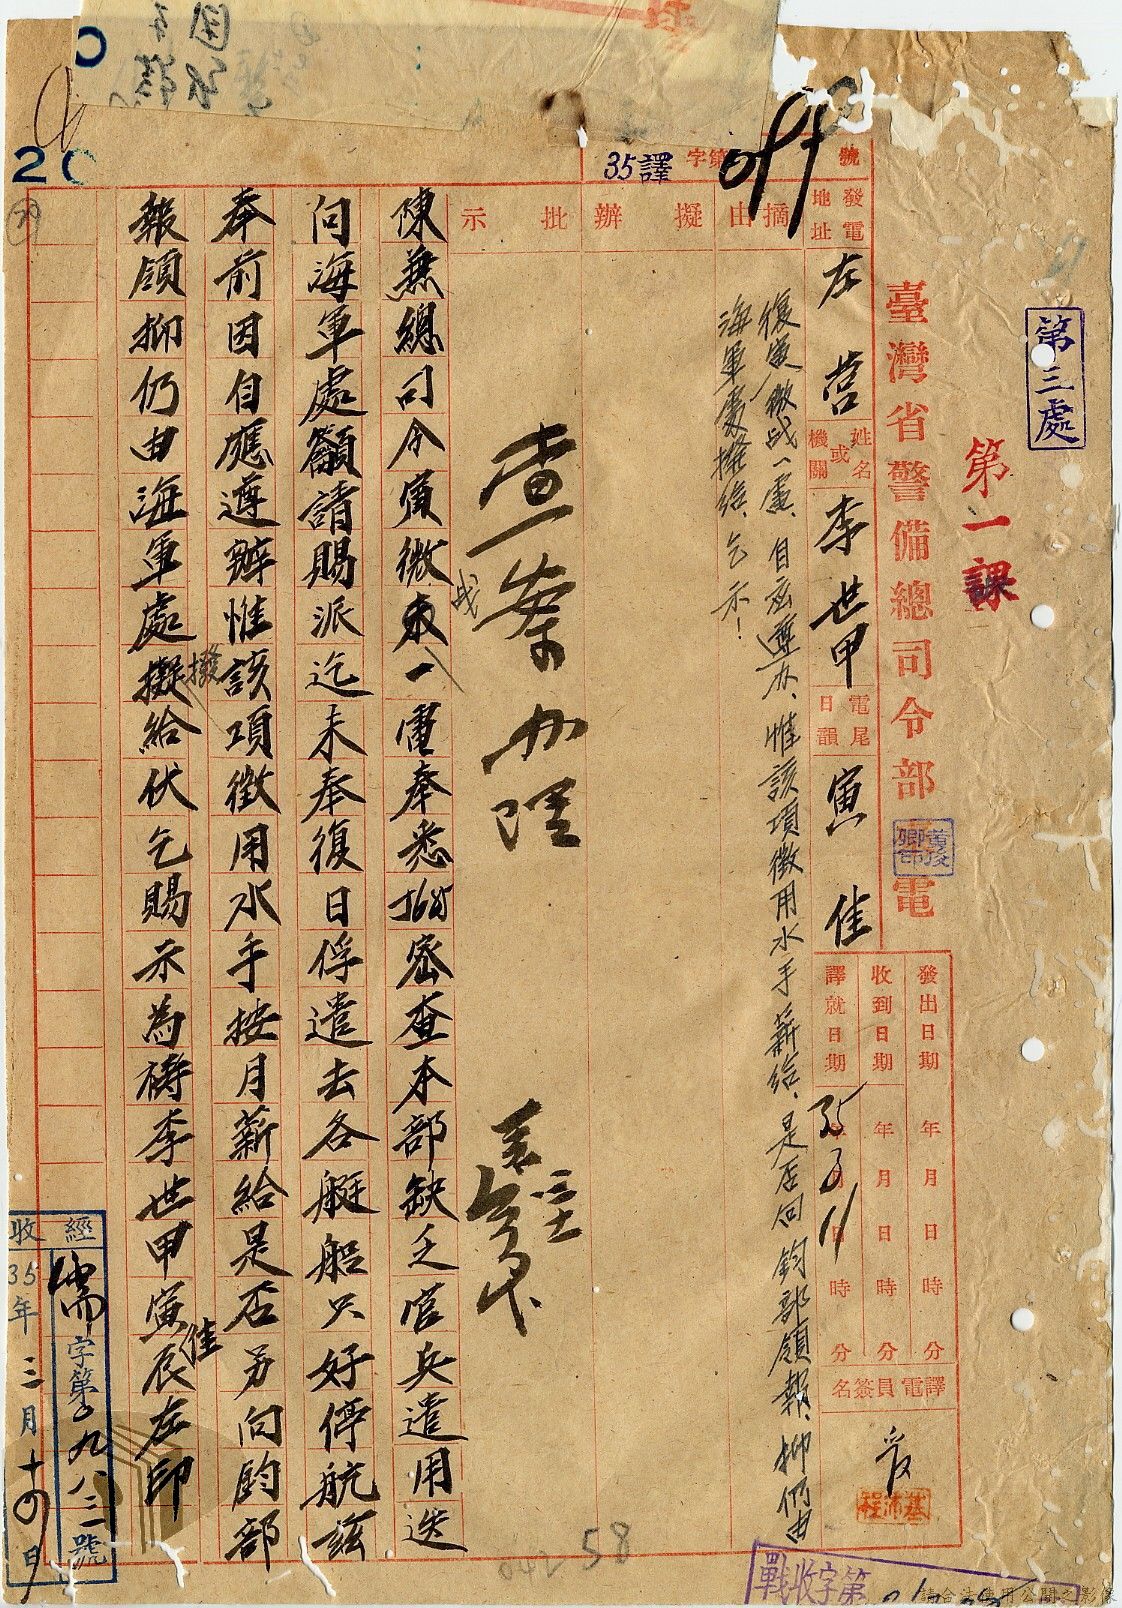 第三處
第一課
臺灣省警備總司令部電
黃俊卿印
35譯字第號
發電地址
左營
姓名或機關
李世甲
電尾日韻
寅佳
發出日期 年月日時分
收到日期 年月日時分
譯就日期 35年3月11日時分
譯電員簽名
摘由
擬辦
批示
復寅微戰一電、自應遵办、惟該項徵用水手薪給、是否向鈞部領報、抑仍由
海軍處撥給、乞示！
查案办理
陳兼總司令寅微未一電奉悉5685密查本部缺乏官兵遣用迭
戰
向海軍處籲請賜派迄未奉復日俘遣去各艇船只好停航茲
奉前因自應遵辦惟該項徵用水手按月薪給是否另向鈞部
報領抑仍由海軍處擬給伏乞賜示為禱李世甲寅辰左印
撥
佳
收35年三月十四日
經儒字第0九八三號
戰收字第
20
58
請合法使用公開之影像